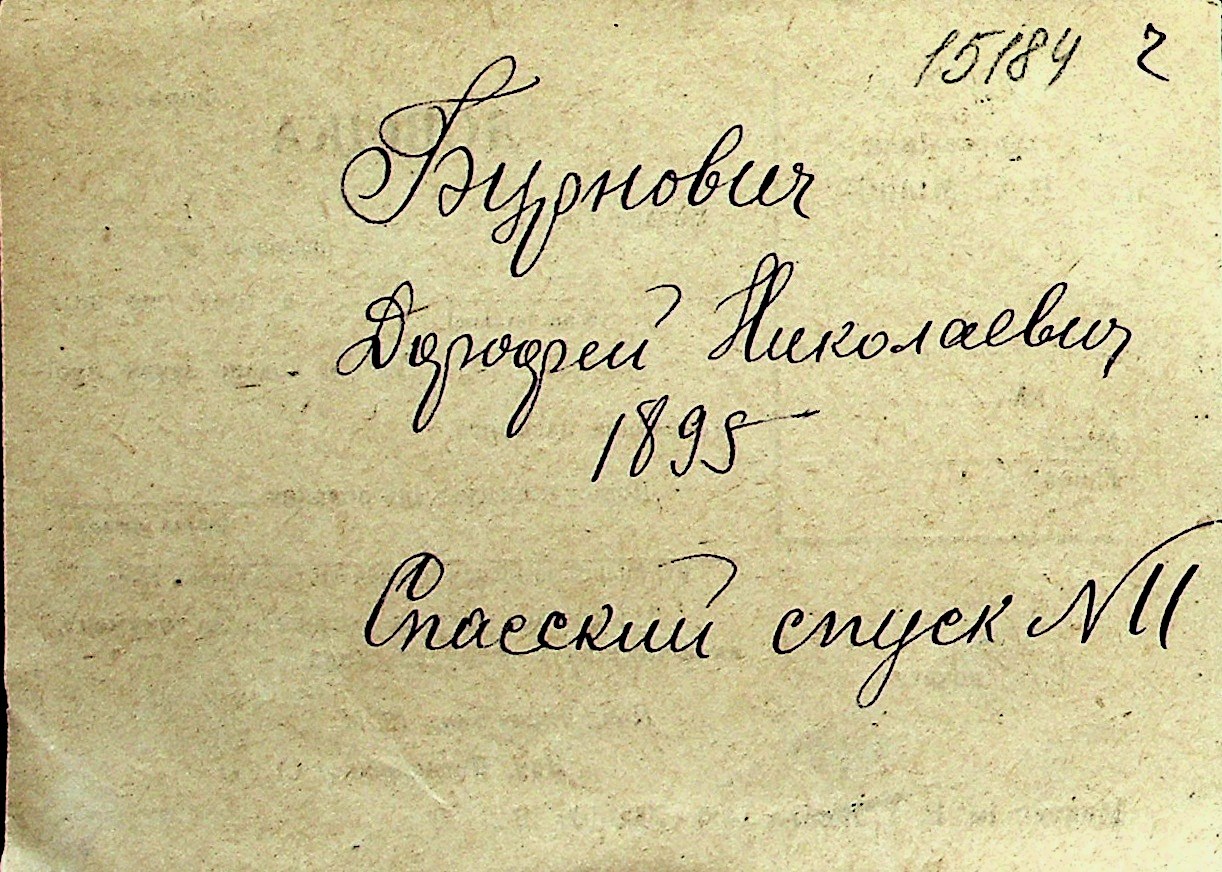 15184 ч
Бурнович
Дорофей Николаевич
1895
Спасский спуск №11